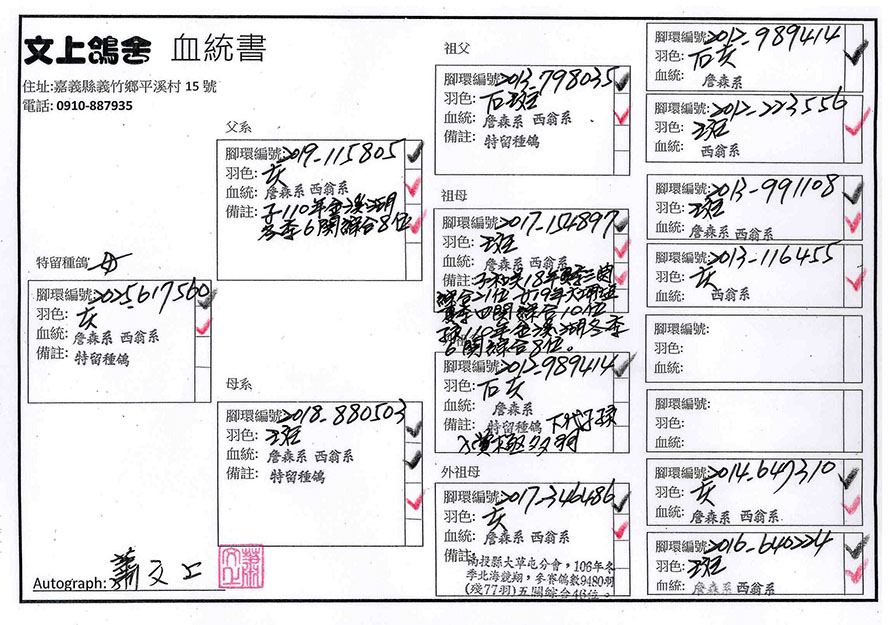 文上鴿舍 血統書
住址:嘉義縣義竹鄉平溪村 15 號
電話: 0910-887935
特留種鴿: 母
腳環編號:2025-617560
羽色: 灰
血統: 詹森系 西翁系
備註: 特留種鴿
父系
腳環編號:2019-115805
羽色: 灰
血統: 詹森系 西翁系
備註: 子110年金溪湖
冬季6關綜合8位
母系
腳環編號:2018-880503
羽色: 斑
血統: 詹森系 西翁系
備註: 特留種鴿
祖父
腳環編號:2013-798035
羽色: 石斑
血統: 詹森系 西翁系
備註: 特留種鴿
祖母
腳環編號:2017-154897
羽色: 斑
血統: 詹森系 西翁系
備註:
夏季四關綜合10位
孫110年金溪湖冬季
6關綜合8位。
腳環編號:2012-989414
羽色: 石灰
血統: 詹森系
備註: 特留種鴿 下代子孫
入賞極多羽
外祖母
腳環編號:2017-346486
羽色: 灰
血統: 詹森系 西翁系
備註: 南投縣大草屯分會，106年冬
季北海競翔，參賽鴿數9480羽
(殘77羽)五關綜合46位。
腳環編號:2012-989414
羽色: 石灰
血統: 詹森系
腳環編號:2012-223556
羽色: 斑
血統: 西翁系
腳環編號:2013-991108
羽色: 斑
血統: 詹森系 西翁系
腳環編號:2013-116455
羽色: 灰
血統: 西翁系
腳環編號:
羽色:
血統:
腳環編號:
羽色:
血統:
腳環編號:2014-647310
羽色: 灰
血統: 詹森系 西翁系
腳環編號:2016-640224
羽色: 斑
血統: 詹森系 西翁系
Autograph: 蕭文上
蕭文上